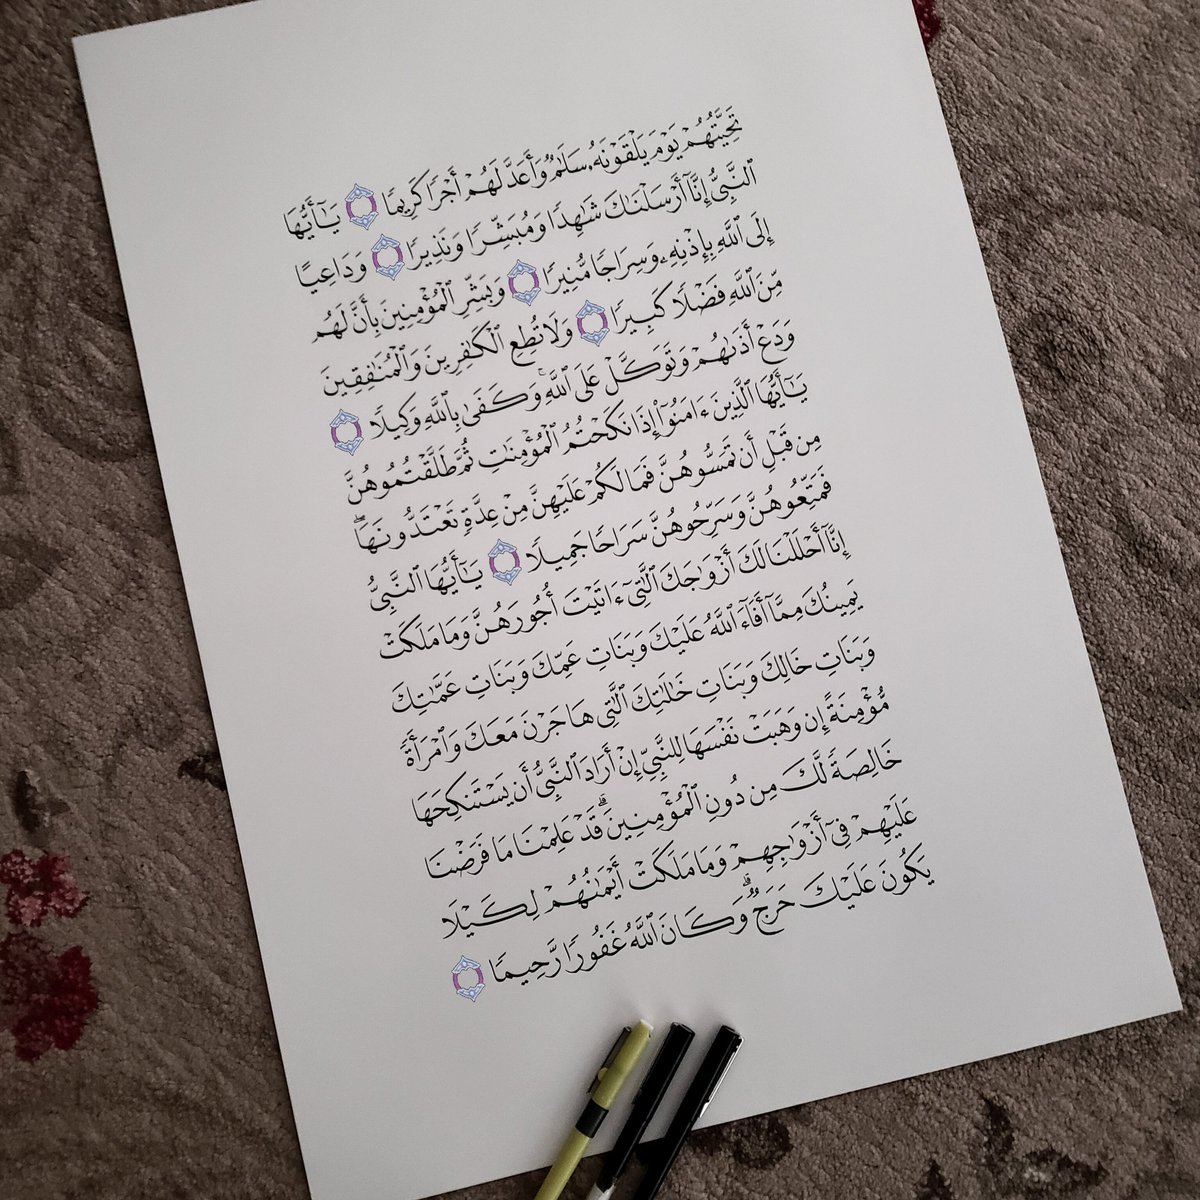 تَحِيَّتُهُمْ يَوْمَ يَلْقَوْنَهُۥ سَلَٰمٌ وَأَعَدَّ لَهُمْ أَجْرًا كَرِيمًا يَٰٓأَيُّهَا
ٱلنَّبِىُّ إِنَّآ أَرْسَلْنَٰكَ شَٰهِدًا وَمُبَشِّرًا وَنَذِيرًا وَدَاعِيًا
إِلَى ٱللَّهِ بِإِذْنِهِۦ وَسِرَاجًا مُّنِيرًا وَبَشِّرِ ٱلْمُؤْمِنِينَ بِأَنَّ لَهُم
مِّنَ ٱللَّهِ فَضْلًا كَبِيرًا وَلَا تُطِعِ ٱلْكَٰفِرِينَ وَٱلْمُنَٰفِقِينَ
وَدَعْ أَذَىٰهُمْ وَتَوَكَّلْ عَلَى ٱللَّهِ ۚ وَكَفَىٰ بِٱللَّهِ وَكِيلًا
يَٰٓأَيُّهَا ٱلَّذِينَ ءَامَنُوٓا۟ إِذَا نَكَحْتُمُ ٱلْمُؤْمِنَٰتِ ثُمَّ طَلَّقْتُمُوهُنَّ
مِن قَبْلِ أَن تَمَسُّوهُنَّ فَمَا لَكُمْ عَلَيْهِنَّ مِنْ عِدَّةٍ تَعْتَدُّونَهَا ۖ
فَمَتِّعُوهُنَّ وَسَرِّحُوهُنَّ سَرَاحًا جَمِيلًا يَٰٓأَيُّهَا ٱلنَّبِىُّ
إِنَّآ أَحْلَلْنَا لَكَ أَزْوَٰجَكَ ٱلَّٰتِىٓ ءَاتَيْتَ أُجُورَهُنَّ وَمَا مَلَكَتْ
يَمِينُكَ مِمَّآ أَفَآءَ ٱللَّهُ عَلَيْكَ وَبَنَاتِ عَمِّكَ وَبَنَاتِ عَمَّٰتِكَ
وَبَنَاتِ خَالِكَ وَبَنَاتِ خَٰلَٰتِكَ ٱلَّٰتِى هَاجَرْنَ مَعَكَ وَٱمْرَأَةً
مُّؤْمِنَةً إِن وَهَبَتْ نَفْسَهَا لِلنَّبِىِّ إِنْ أَرَادَ ٱلنَّبِىُّ أَن يَسْتَنكِحَهَا
خَالِصَةً لَّكَ مِن دُونِ ٱلْمُؤْمِنِينَ ۗ قَدْ عَلِمْنَا مَا فَرَضْنَا
عَلَيْهِمْ فِىٓ أَزْوَٰجِهِمْ وَمَا مَلَكَتْ أَيْمَٰنُهُمْ لِكَيْلَا
يَكُونَ عَلَيْكَ حَرَجٌ ۗ وَكَانَ ٱللَّهُ غَفُورًا رَّحِيمًا